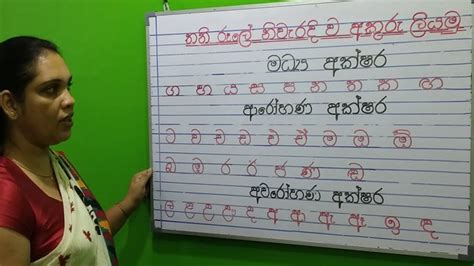 තනි රූලේ නිවැරදි ව අකුරු ලියමු
මධ්‍ය අක්ෂර
ග හ ය ස ප න ත ත ක ඟ
ආරෝහණ අක්ෂර
ට ව ච ඩ ඩ ඒ ඒ ම ඔ ඕ
ඛ ඹ ර ර ජ ණ ඬ
අවරෝහණ අක්ෂර
ල ළ උ ඌ ද අ ආ ඇ ඈ ඉ ඳ